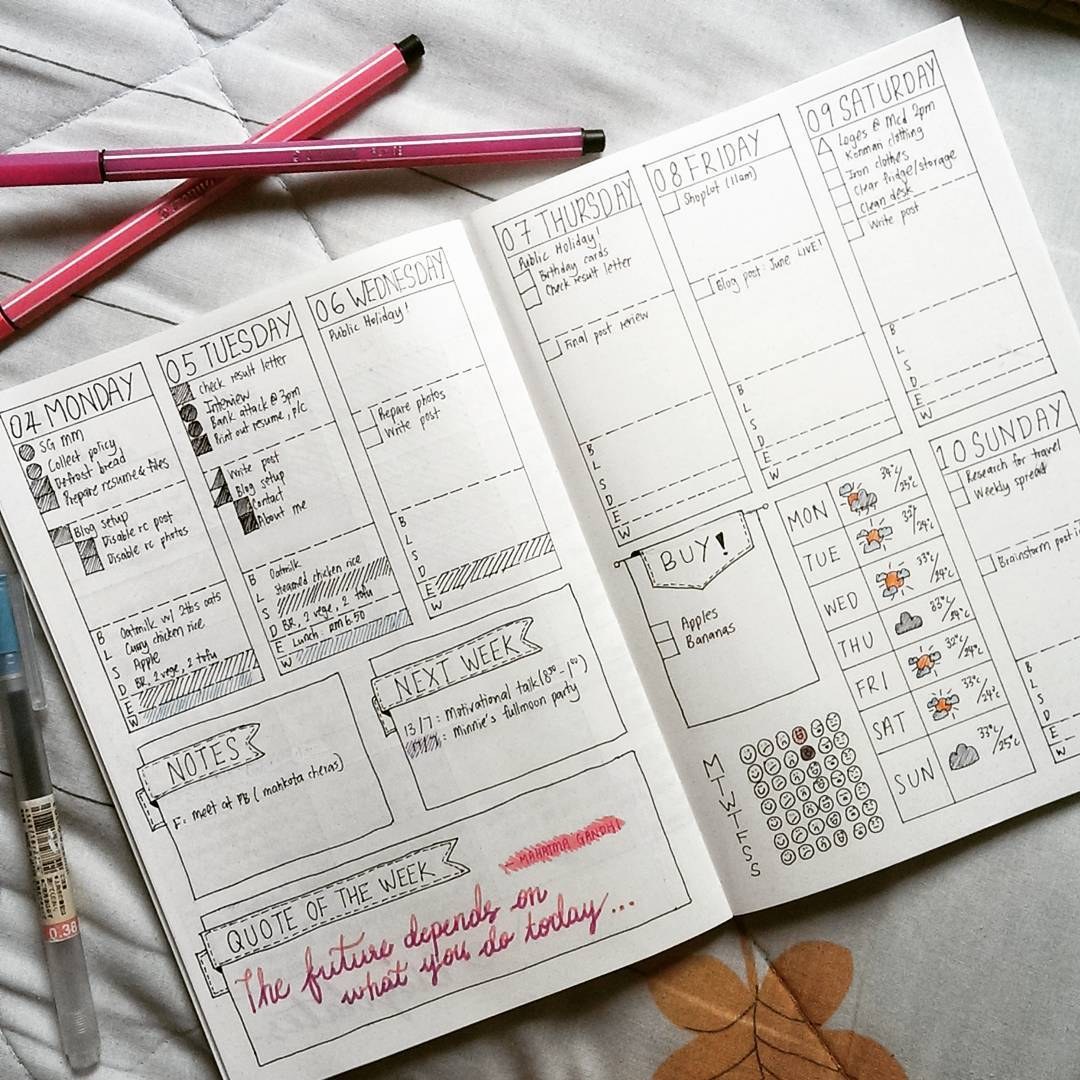 04 MONDAY
SG MM
Collect policy
Defrost bread
Prepare resume & files
Blog setup
Disable rc post
Disable rc photos
B Oatmilk w/ 2tbs oats
L Curry chicken rice
S Apple
D BR, 2 vege, 2 tofu
E
W
05 TUESDAY
check result letter
Interview
Bank attack @ 3pm
Print out resume, plc
Write post
Blog setup
Contact
About me
B Oatmilk
L Steamed chicken rice
S
D BR, 2 vege, 2 tofu
E Lunch: RM 6.50
W
06 WEDNESDAY
Public Holiday!
Prepare photos
Write post
B
L
S
D
E
W
NOTES
F: meet at PB (mahkota cheras)
NEXT WEEK
13/7: Motivational talk
: Minnie's fullmoon party
QUOTE OF THE WEEK
MAHATMA GANDHI
The future depends on
what you do today...
07 THURSDAY
Public Holiday!
Birthday cards
Check result letter
Final post review
B
L
S
D
E
W
08 FRIDAY
Shoplot (11am)
Blog post: June LIVE!
B
L
S
D
E
W
09 SATURDAY
Loges @ Mcd 2pm
Konman clothing
Iron clothes
Clear fridge/storage
Clean desk
Write post
B
L
S
D
E
W
10 SUNDAY
Research for travel
Weekly spread
Brainstorm post
B
L
S
D
E
W
BUY!
Apples
Bananas
MON 34°c/25°c
TUE 33°/24°c
WED 33°c/24°c
THU 33°c/24°c
FRI 33°c/24°c
SAT 33°c/24°c
SUN 33°c/25°c
M
T
W
T
F
S
S
0.38